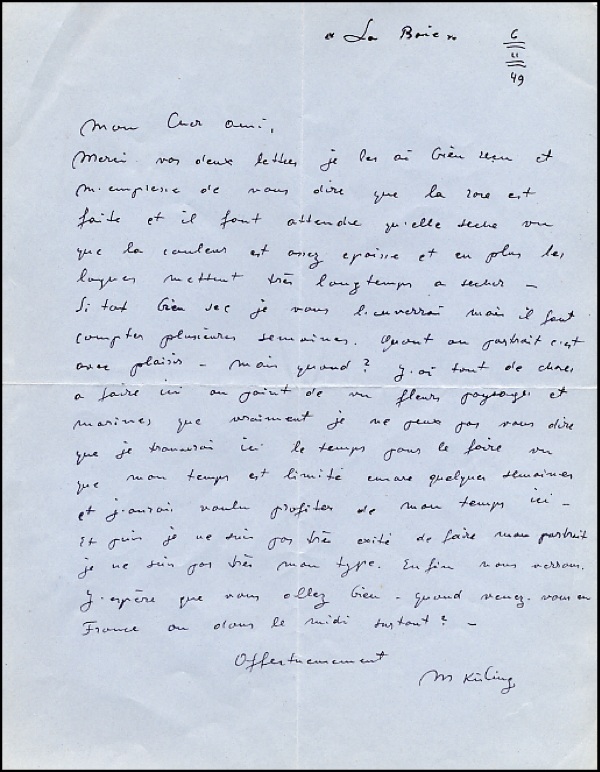 « La Baie »
6
11
49
Mon Cher ami,
Merci vos deux lettres je les ai bien reçu et
m'empresse de vous dire que la rose est
faite et il faut attendre qu'elle seche vu
que la couleur est assez epaisse et en plus les
laques mettent très longtemps a secher –
Si tot bien sec je vous l'enverrai mais il faut
compter plusieures semaines. Quant au portrait c'est
avec plaisir – mais quand? J'ai tant de choses
a faire ici au point de vu fleurs paysages et
marines que vraiment je ne peux pas vous dire
que je trouverai ici le temps pour le faire vu
que mon temps est limité encore quelques semaines
et j'aurais voulu profiter de mon temps ici –
Et puis je ne suis pas très exité de faire mon portrait
je ne suis pas très mon type. Enfin nous verrons.
J'espère que vous allez bien – quand venez-vous en
France ou dans le midi surtout? –
Affectueusement
M Kisling